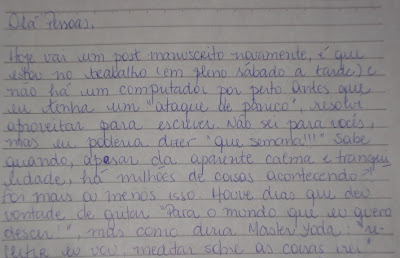 Olá Pessoas,
Hoje vai um post manuscrito novamente, é que
estou no trabalho (em pleno sábado a tarde) e
não há um computador por perto. Antes que
eu tenha um "ataque de pânico", resolvi
aproveitar para escrever. Não sei para vocês,
mas eu poderia dizer "que semana!!!" Sabe
quando, apesar da aparente calma e tranqui
lidade, há milhões de coisas acontecendo?
Foi mais ou menos isso. Houve dias que deu
vontade de gritar "Para o mundo que eu quero
descer!", mas como diria Master Yoda: "re
fletir eu vou, meditar sobre as coisas irei"